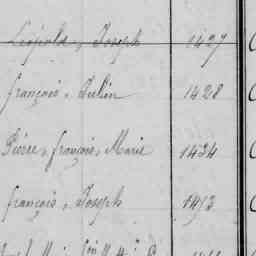 Léopold, Joseph 1427
françois, Julien 1428
Pierre, françois, Marie 1434
françois, Joseph 1413